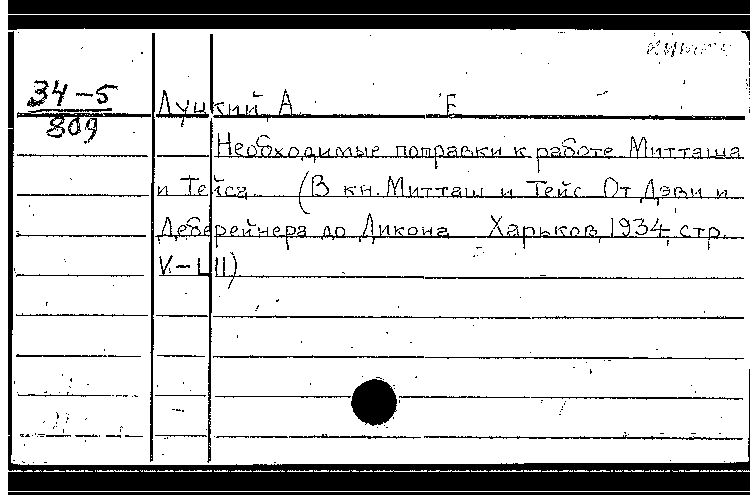 34-5
809
Луцкий, А. Е
Необходимые поправки к работе Митташа
и Тейса. (В кн. Митташ и Тейс От Дэви и
Деберейнера до Дикона Харьков, 1934, стр.
V-LII)